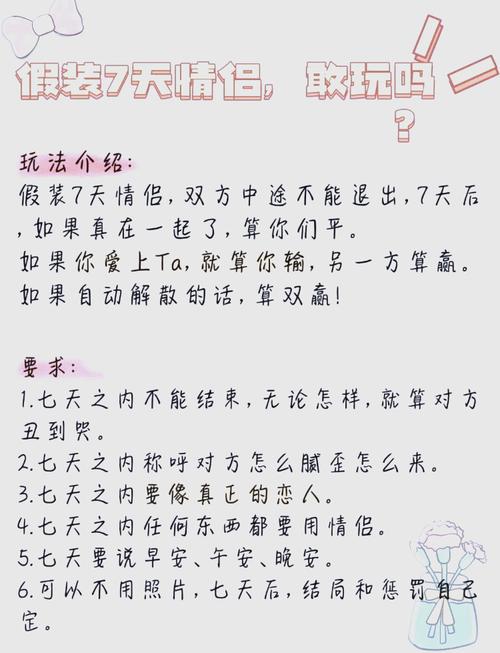 假装7天情侣，敢玩吗
？
玩法介绍:
假装7天情侣,双方中途不能退出,7天后
,如果真在一起了,算你们平。
如果你爱上Ta,就算你输,另一方算赢。
如果自动解散的话,算双赢!
要求:
1.七天之内不能结束,无论怎样,就算对方
丑到哭。
2.七天之内称呼对方怎么腻歪怎么来。
3.七天之内要像真正的恋人。
4.七天之内任何东西都要用情侣。
5.七天要说早安、午安、晚安。
6.可以不用照片,七天后,结局和惩罚自己
定。